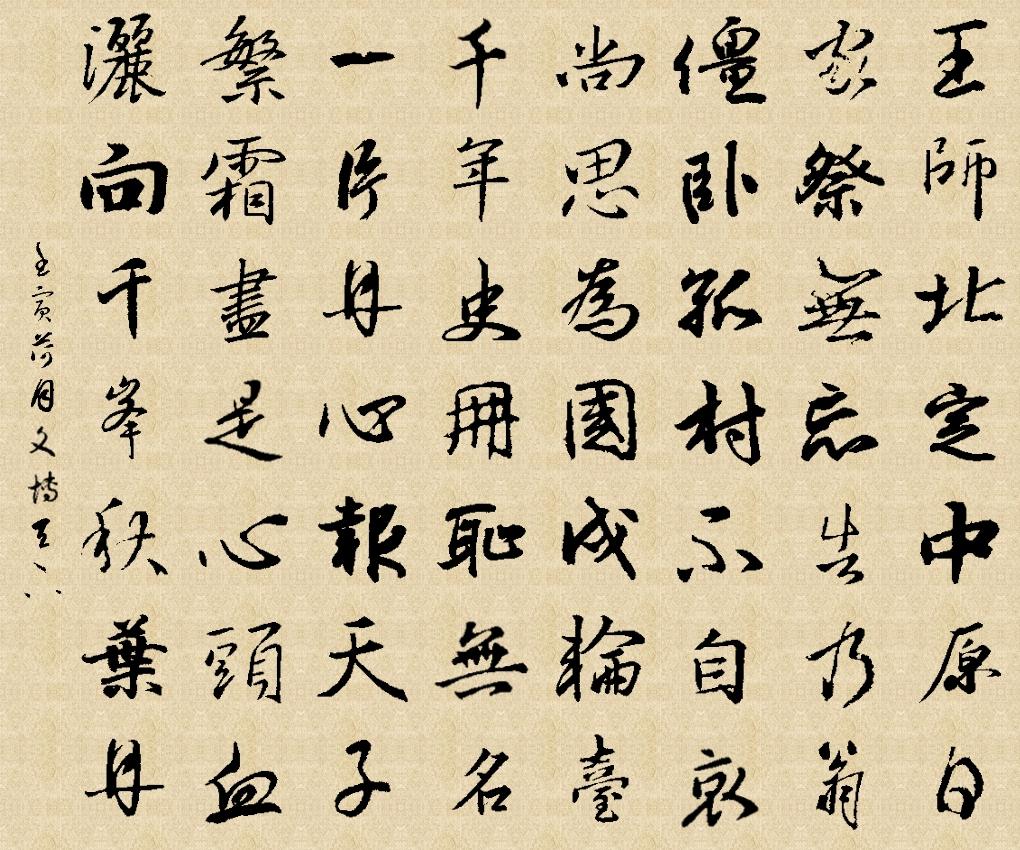 王師北定中原日
家祭無忘告乃翁
僵卧孤村不自哀
尚思為國戍輪臺
千年史冊恥無名
一片丹心報天子
繁霜盡是心頭血
灑向千峯秋葉丹
壬寅荷月文博